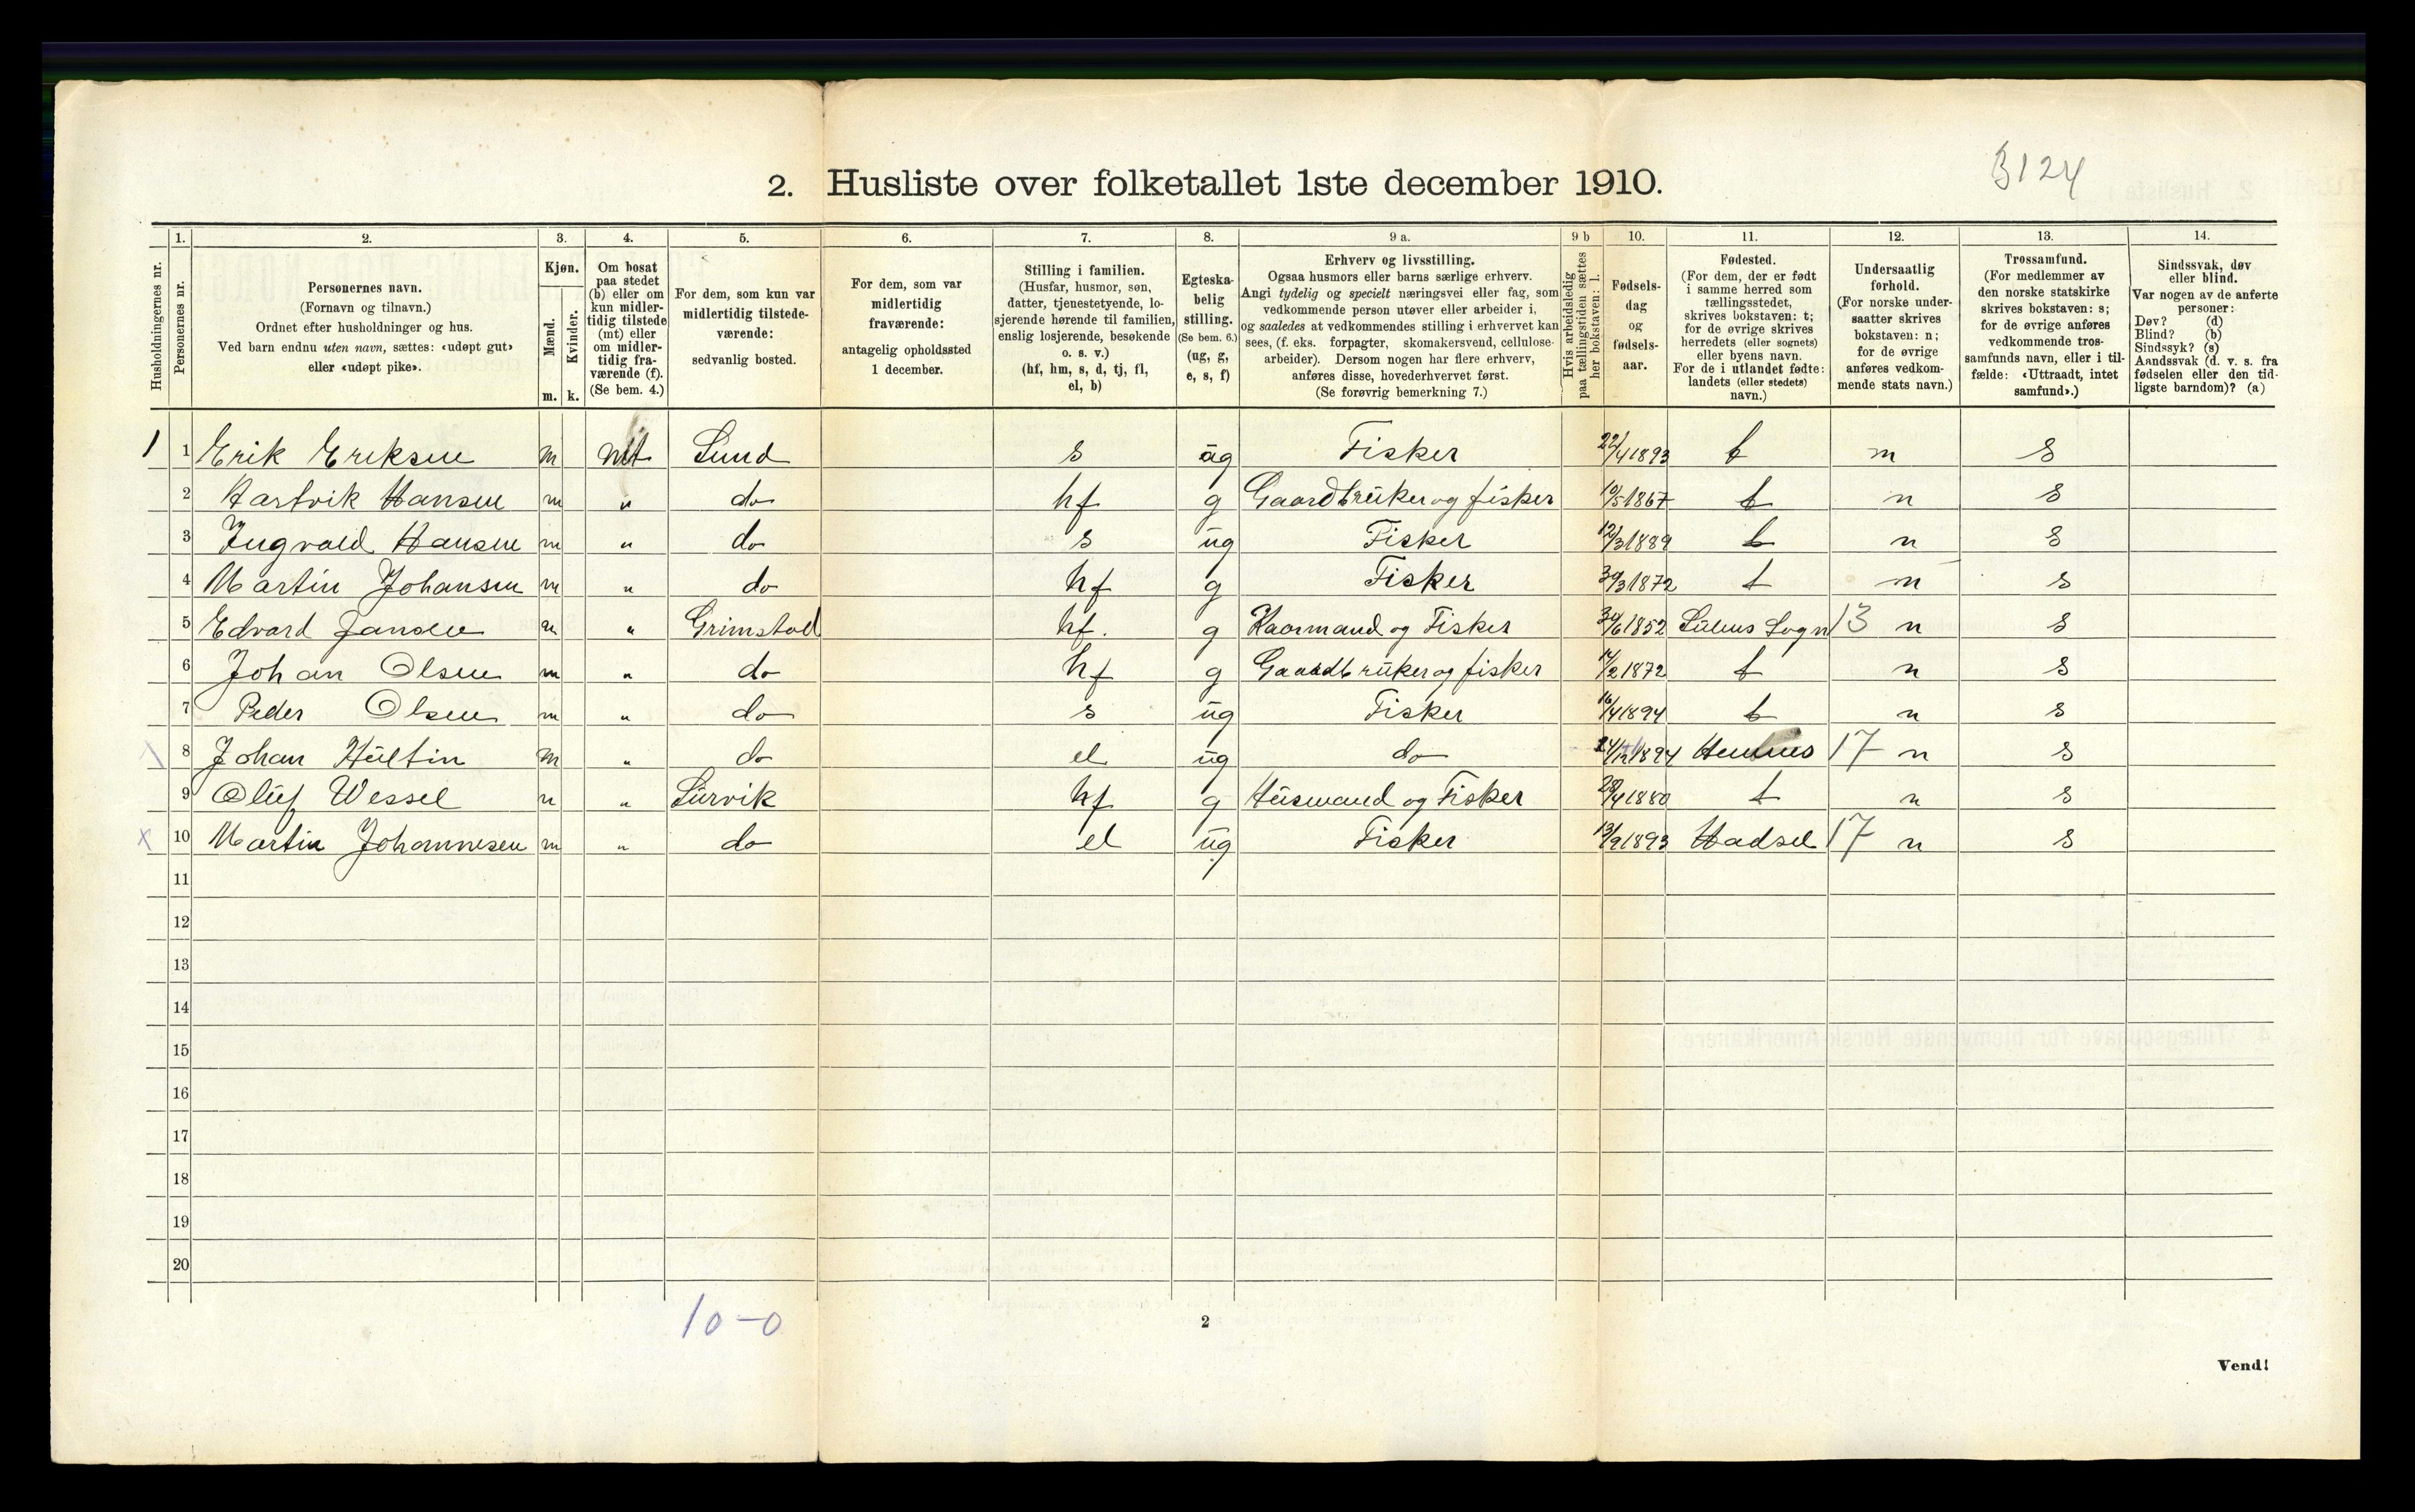 B124
2. Husliste over folketallet 1ste december 1910.
Husholdningernes nr.
1.
Personernes nr.
2.
Personernes navn.
(Fornavn og tilnavn.)
Ordnet efter husholdninger og hus.
Ved barn endnu uten navn, sættes: «udøpt gut»
eller «udøpt pike».
3.
Kjøn.
Mænd.
Kvinder.
m. k.
4.
Om bosat
paa stedet
(b) eller om
kun midler-
tidig tilstede
(mt) eller
om midler-
tidig fra-
værende (f).
(Se bem. 4.)
5.
For dem, som kun var
midlertidig tilstede-
værende:
sedvanlig bosted.
6.
For dem, som var
midlertidig
fraværende:
antagelig opholdssted
1 december.
7.
Stilling i familien.
(Husfar, husmor, søn,
datter, tjenestetyende, lo-
sjerende hørende til familien,
enslig losjerende, besøkende
o. s. v.)
(hf, hm, s, d, tj, fl,
el, b)
8.
Egteska-
belig
stilling.
(Se bem. 6.)
(ug, g,
e, s, f)
9 a.
Erhverv og livsstilling.
Ogsaa husmors eller barns særlige erhverv.
Angi tydelig og specielt næringsvei eller fag, som
vedkommende person utøver eller arbeider i,
og saaledes at vedkommendes stilling i erhvervet kan
sees, (f. eks. forpagter, skomakersvend, cellulose-
arbeider). Dersom nogen har flere erhverv,
anføres disse, hovederhvervet først.
(Se forøvrig bemerkning 7.)
9 b
Hvis arbeidsledig
paa tællingstiden sættes
her bokstaven: l.
10.
Fødsels-
dag
og
fødsels-
aar.
11.
Fødested.
(For dem, der er født
i samme herred som
tællingsstedet,
skrives bokstaven: t;
for de øvrige skrives
herredets (eller sognets)
eller byens navn.
For de i utlandet fødte:
landets (eller stedets)
navn.)
12.
Undersaatlig
forhold.
(For norske under-
saatter skrives
bokstaven: n;
for de øvrige
anføres vedkom-
mende stats navn.)
13.
Trossamfund.
(For medlemmer av
den norske statskirke
skrives bokstaven: s;
for de øvrige anføres
vedkommende tros-
samfunds navn, eller i til-
fælde: «Uttraadt, intet
samfund».)
14.
Sindssvak, døv
eller blind.
Var nogen av de anførte
personer:
Døv? (d)
Blind? (b)
Sindssyk? (s)
Aandssvak (d. v. s. fra
fødselen eller den tid-
ligste barndom)? (a)
1 1 Erik Eriksen m mt Lund s ug Fisker 22/4 1893 t n s
2 Hartvik Hansen m " do hf g Gaardbruker og fisker 10/5 1867 t n s
3 Ingvald Hansen m " do s ug Fisker 12/3 1889 t n s
4 Martin Johansen m " do hf g Fisker 30/3 1872 t n s
5 Edvard Jansen m " Grimstad hf. g Kaarmand og Fisker 30/6 1852 Sogn 13 n s
6 Johan Olsen m " do hf g Gaardbruker og fisker 14/2 1872 t n s
7 Peder Olsen m " do s ug Fisker 16/4 1894 t n s
8 Johan Hultin m " do el ug do 24/12 1894 Hemnes 17 n s
9 Oluf Wessel m " Survik hf g Husmand og Fisker 28/4 1880 t n s
x 10 Martin Johannesen m " do el ug Fisker 13/9 1893 Hadsel 17 n s
11
12
13
14
15
16
17
18
19
20
10-0
2
Vend!